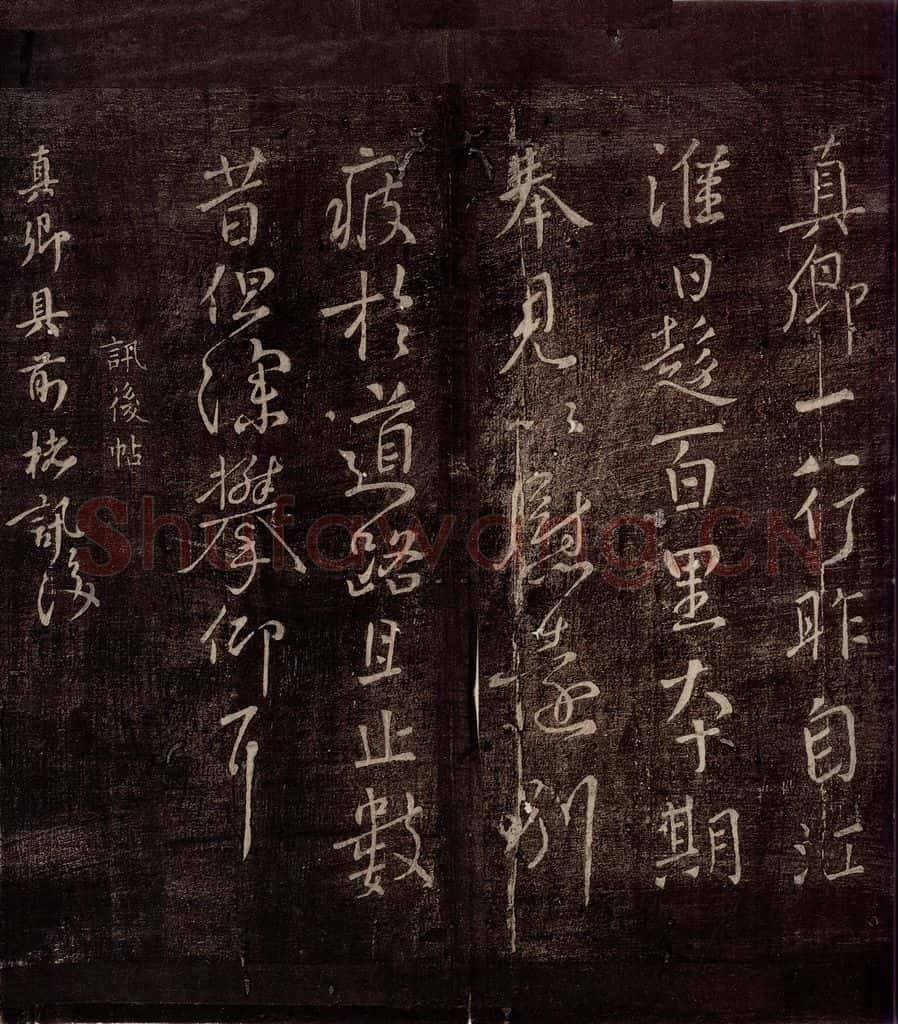 真卿一行昨自江
淮日趍百里夲期
奉見以慰遠別
疲於道路且止數
昔但深攀仰耳
訊後帖
真卿具前楮訊後
Shufawang.CN